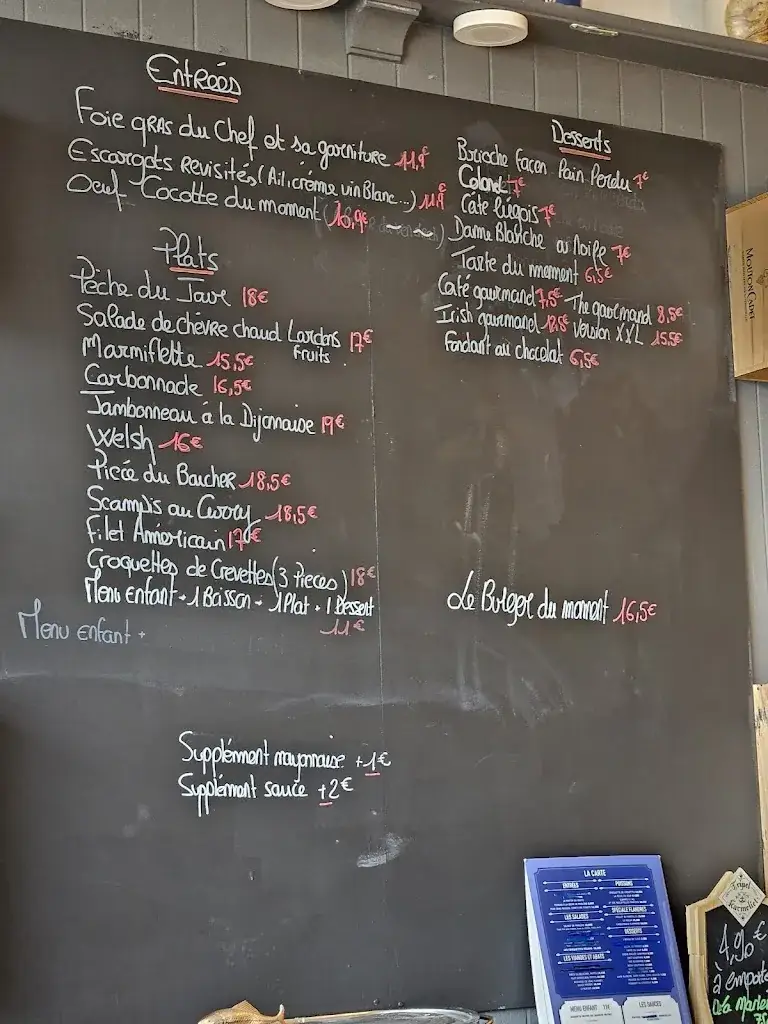 Entrées
Foie gras du Chef et sa garniture 11,9€
Escargots Revisités (Ail, crème vin Blanc...) 11,9€
Oeuf Cocotte du moment (10,9€
Plats
Pêche du Jour 18€
Salade de chèvre chaud Lardons 17€
fruits
Marmiflette 15,5€
Carbonnade 16,5€
Jambonneau à la Dijonnaise 19€
Welsh 16€
Pièce du Boucher 18,5€
Scampis au Curry 18,5€
Filet Américain 17€
Croquettes de Crevettes (3 Pièces) 18€
Menu enfant + 1 Boisson + 1 Plat + 1 Dessert
11€
Menu enfant +
Supplément mayonnaise +1€
Supplément sauce +2€
Desserts
Brioche façon Pain Perdu 7€
Colonel 7€
Café liégois 7€
Dame Blanche ou Noire 7€
Tarte du moment 6,5€
Café gourmand 7,5€ Thé gourmand 8,5€
Irish gourmand 12,5€ Version XXL 15,5€
Fondant au chocolat 6,5€
Le Burger du moment 16,5€
MOUTON CADET
LA CARTE
ENTRÉES
POISSONS
SPÉCIALE FLANDRES
LES SALADES
DESSERTS
LES VIANDES ET ABATS
MENU ENFANT 11€
LES SAUCES
Tripel
Karmeliet
4,90€
à emporter